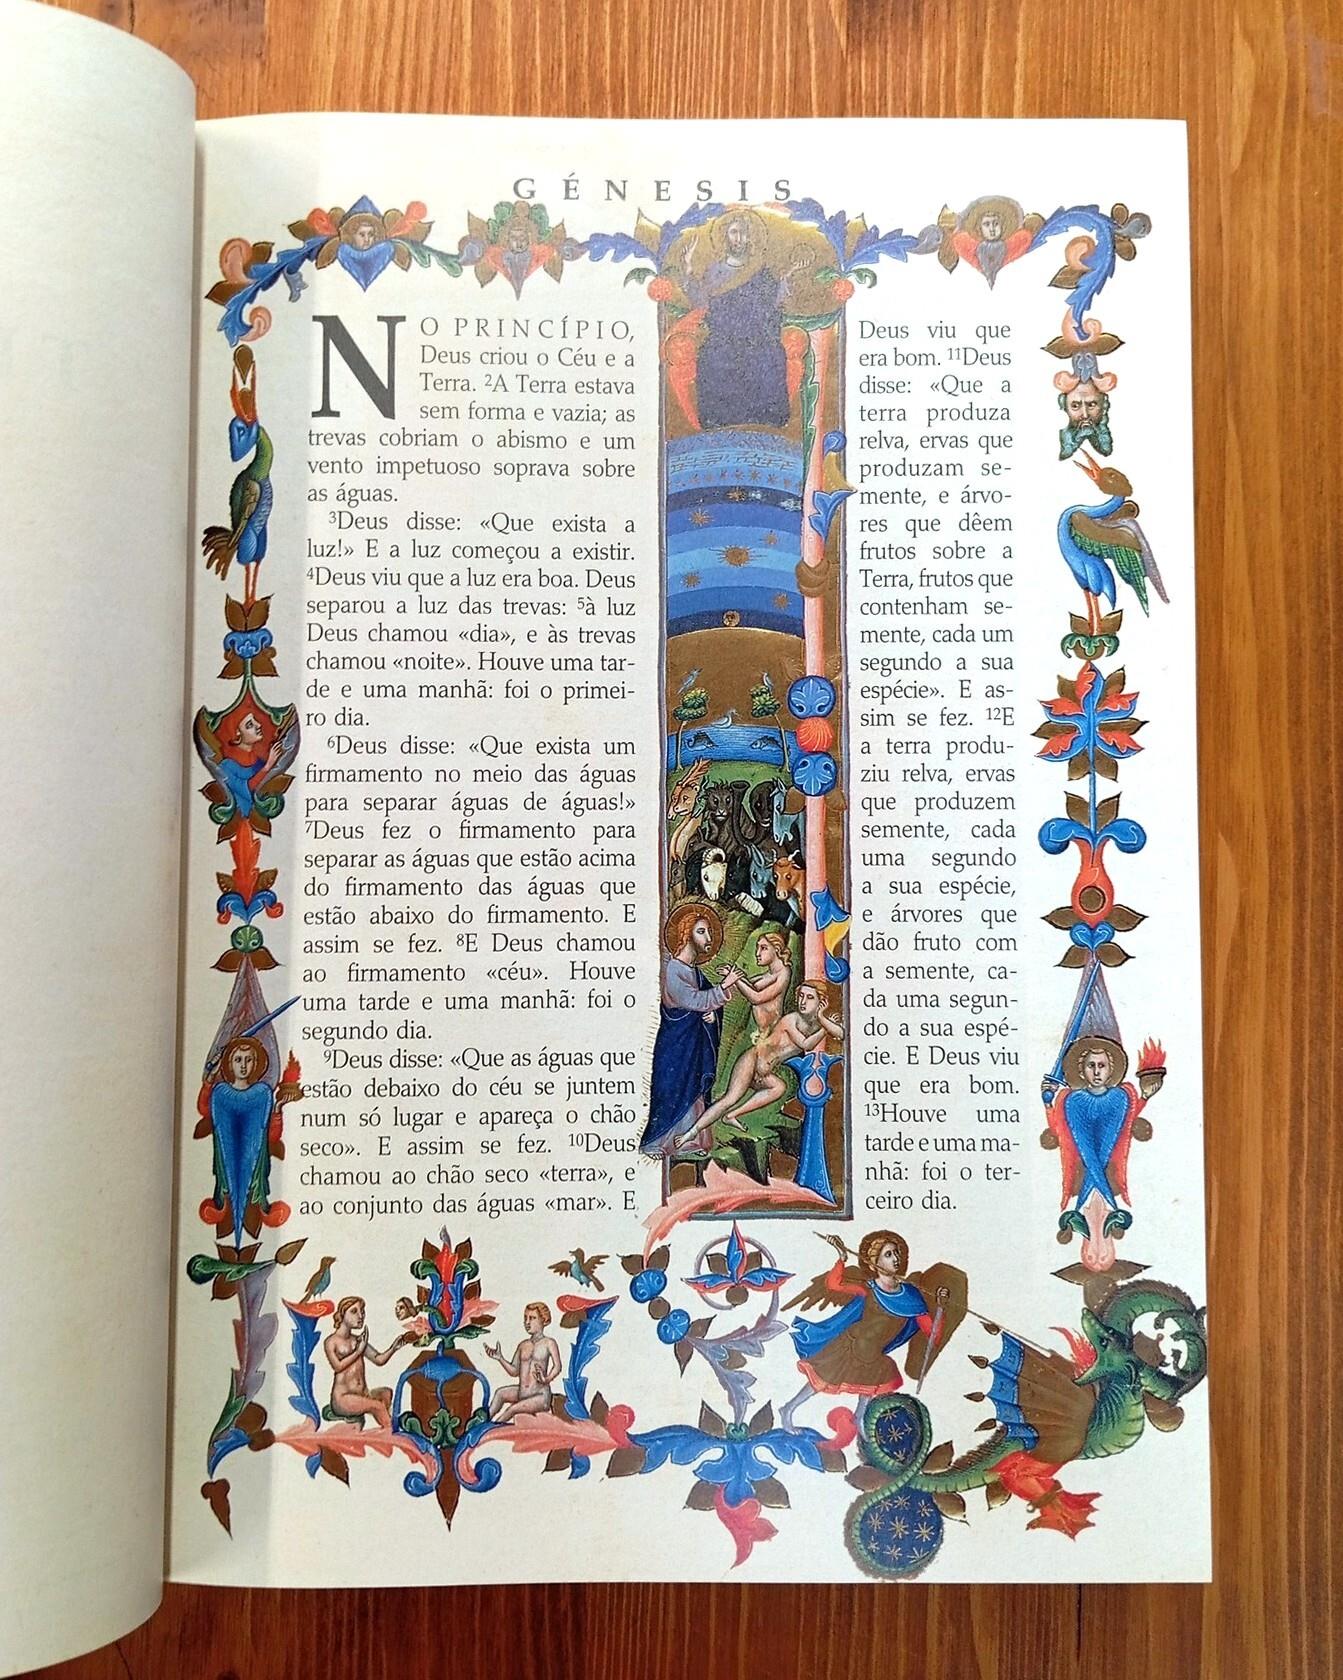 GÉNESIS
NO PRINCÍPIO,
Deus criou o Céu e a
Terra. ²A Terra estava
sem forma e vazia; as
trevas cobriam o abismo e um
vento impetuoso soprava sobre
as águas.
³Deus disse: «Que exista a
luz!» E a luz começou a existir.
⁴Deus viu que a luz era boa. Deus
separou a luz das trevas: ⁵à luz
Deus chamou «dia», e às trevas
chamou «noite». Houve uma tar-
de e uma manhã: foi o primei-
ro dia.
⁶Deus disse: «Que exista um
firmamento no meio das águas
para separar águas de águas!»
⁷Deus fez o firmamento para
separar as águas que estão acima
do firmamento das águas que
estão abaixo do firmamento. E
assim se fez. ⁸E Deus chamou
ao firmamento «céu». Houve
uma tarde e uma manhã: foi o
segundo dia.
⁹Deus disse: «Que as águas que
estão debaixo do céu se juntem
num só lugar e apareça o chão
seco». E assim se fez. ¹⁰Deus
chamou ao chão seco «terra», e
ao conjunto das águas «mar». E
Deus viu que
era bom. ¹¹Deus
disse: «Que a
terra produza
relva, ervas que
produzam se-
mente, e árvo-
res que dêem
frutos sobre a
Terra, frutos que
contenham se-
mente, cada um
segundo a sua
espécie». E as-
sim se fez. ¹²E
a terra produ-
ziu relva, ervas
que produzem
semente, cada
uma segundo
a sua espécie,
e árvores que
dão fruto com
a semente, ca-
da uma segun-
do a sua espé-
cie. E Deus viu
que era bom.
¹³Houve uma
tarde e uma ma-
nhã: foi o ter-
ceiro dia.